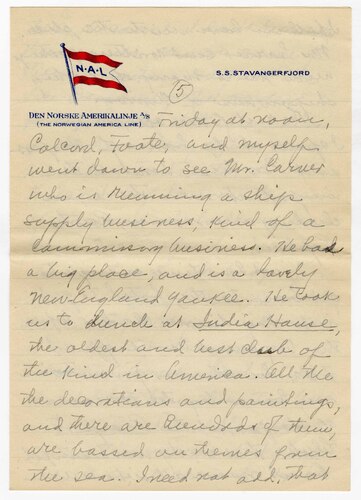 N·A·L
S.S. STAVANGERFJORD
(5)
DEN NORSKE AMERIKALINJE A/S
(THE NORWEGIAN AMERICA LINE)
Friday at noon,
Colcord, Foote, and myself
went down to see Mr. Carver
who is running a ship
supply business, kind of a
commissary business. He had
a big place, and is a lovely
New-England Yankee. He took
us to lunch at India House,
the oldest and best club of
the kind in America. All the
the decorations and paintings,
and there are hundreds of them,
are based on themes from
the sea. I need not add, that